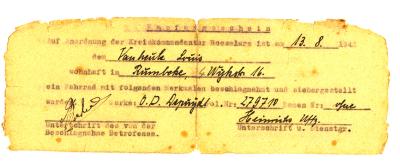 Empfangsschein
Auf Anordnung der Kreiskommandantur Roeselare ist am 13.8. 194
dem Vanheule Louis
wohnhaft in Rumbeke, Wijkstr 16.
ein Fahrrad mit folgenden Merkmalen beschlagnahmt und sichergestellt
Marke: O.D. Nr: 279710 Rahmen Nr: ohne
Heinrichs Uffz.
Unterschrift des von der Unterschrift u. Dienstgr.
Beschlagnahme Betroffenen.